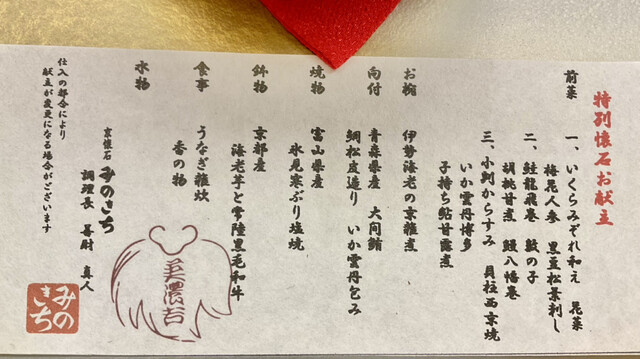 特別懐石お献立
前菜 一、いくらみぞれ和え 花菜
梅花人参 黒豆松葉刺し
二、鮭龍飛巻 数の子
胡桃甘煮 鰻八幡巻
三、小判からすみ 貝柱西京焼
いか雲丹博多
子持ち鮎甘露煮
お椀 伊勢海老の京雑煮
向付 青森県産 大間鮪
鯛松皮造り いか雲丹包み
焼物 富山県産
氷見寒ぶり塩焼
鉢物 京都産
海老芋と常陸黒毛和牛
食事 うなぎ雑炊
香の物
水物
京懐石 みのきち
調理長 真人
仕入の都合により
献立が変更になる場合がございます
美濃吉
みのきち